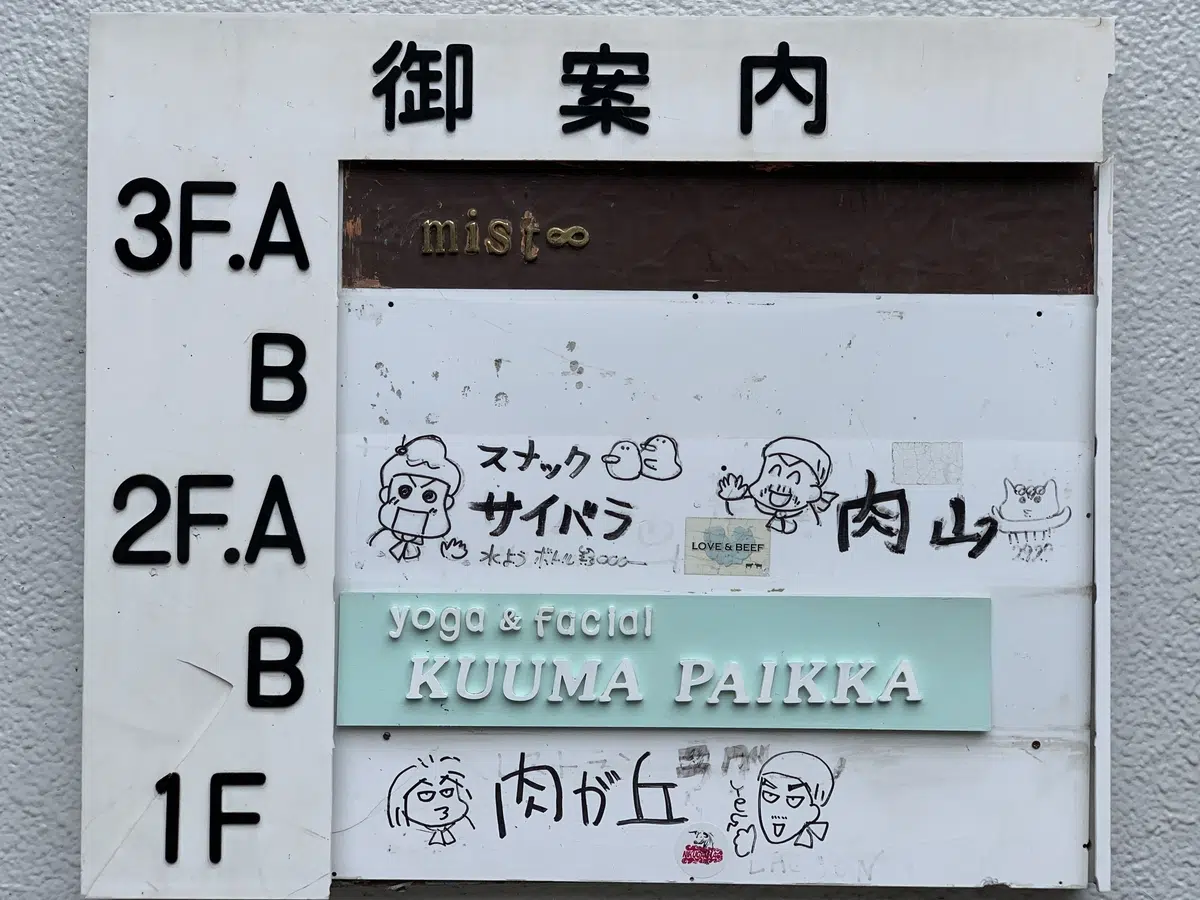 御案内
3F.A
mist∞
B
2F.A
スナック
サイバラ
水よう ボトル
肉山
LOVE & BEEF
B
yoga & facial
KUUMA PAIKKA
1F
肉が丘